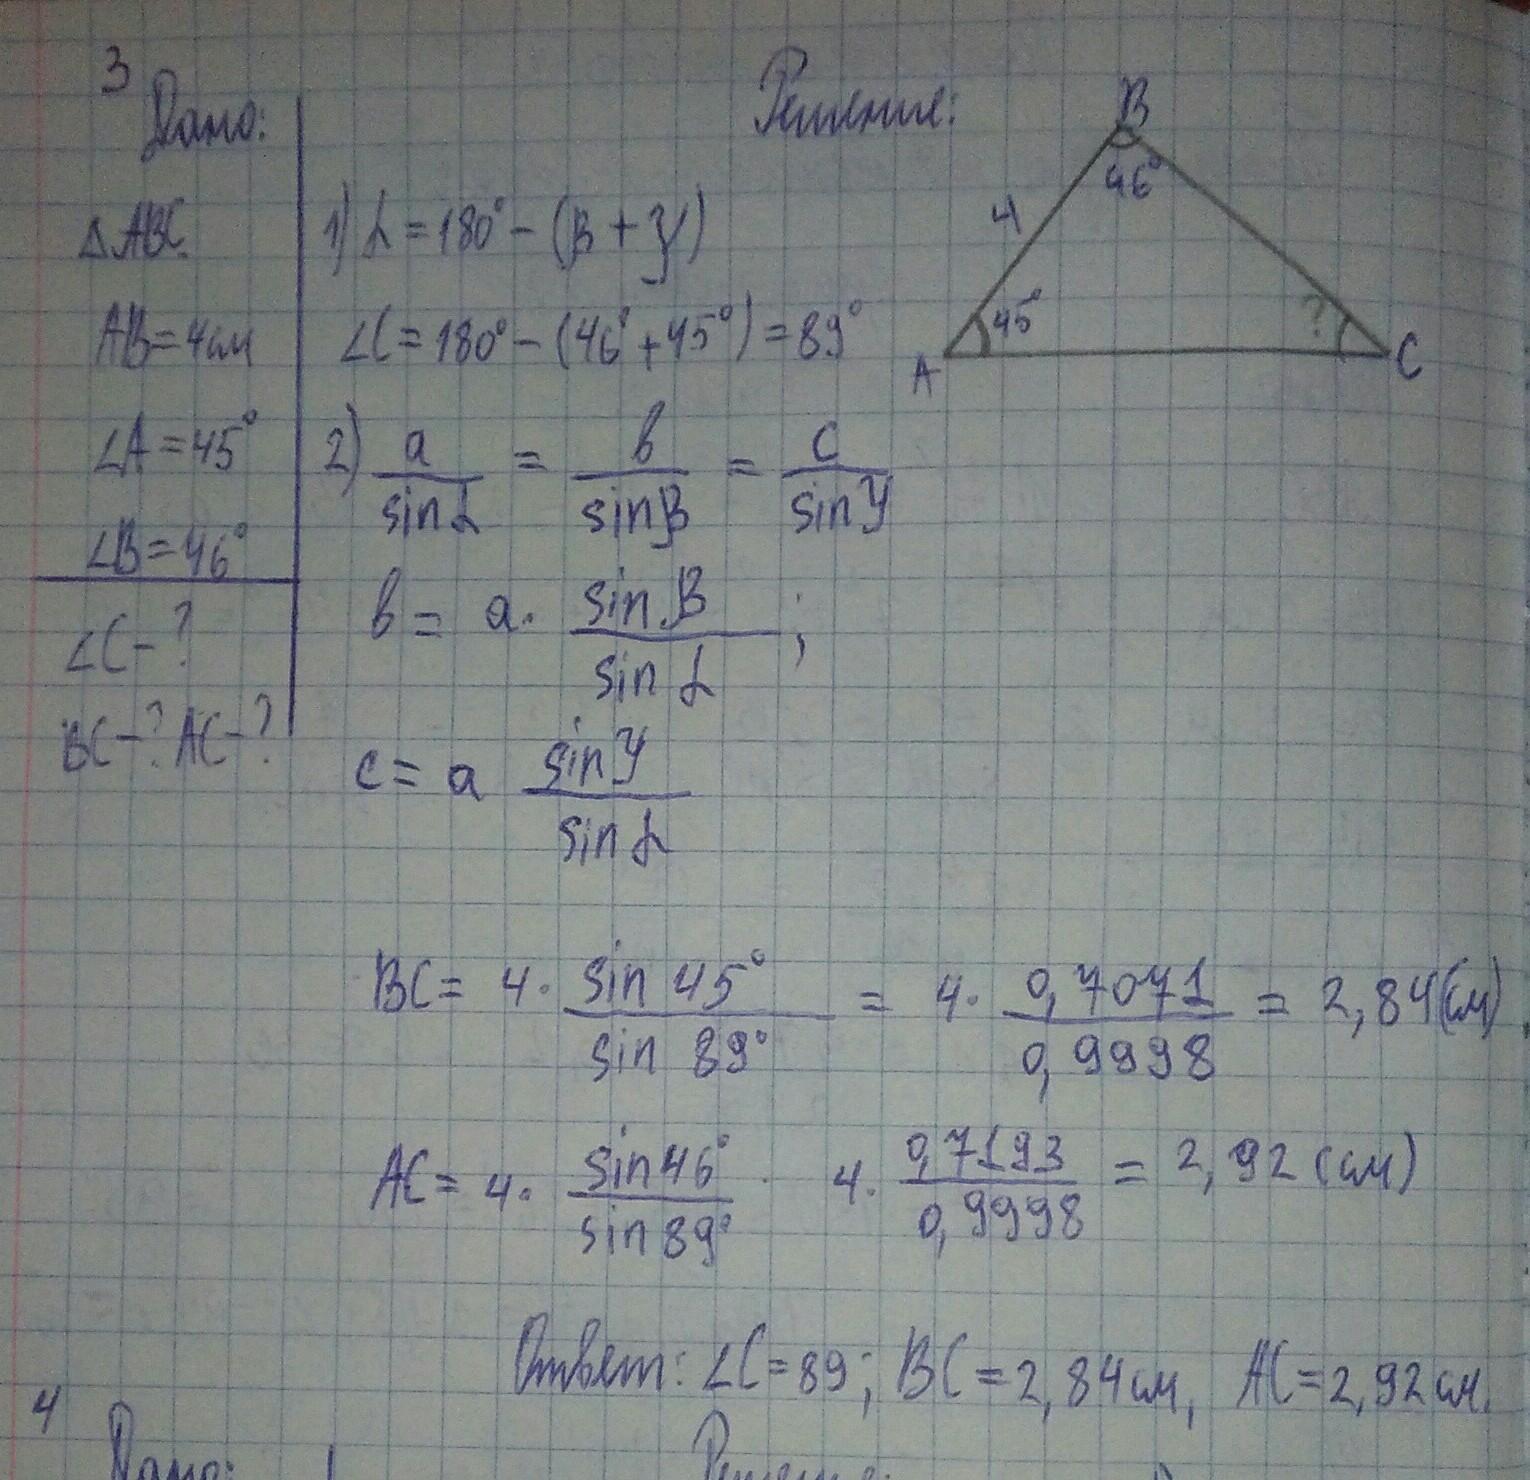 3
Дано:
Решение:
△ABC.
AB=4см
∠A=45°
∠B=46°
∠C-?
BC-? AC-?
B
46°
4
45°
?
A
C
1) α=180°-(β+γ)
∠C=180°-(46°+45°)=89°
2) a/sinα = b/sinβ = c/sinγ
b= a· sinβ/sinα ;
c= a sinγ/sinα
BC= 4· sin 45°/sin 89° = 4· 0,7071/0,9998 = 2,84(см)
AC= 4· sin46°/sin89° 4· 0,7193/0,9998 = 2,92 (см)
Ответ: ∠C=89; BC=2,84см, AC=2,92см.
4
Дано:
Решение: